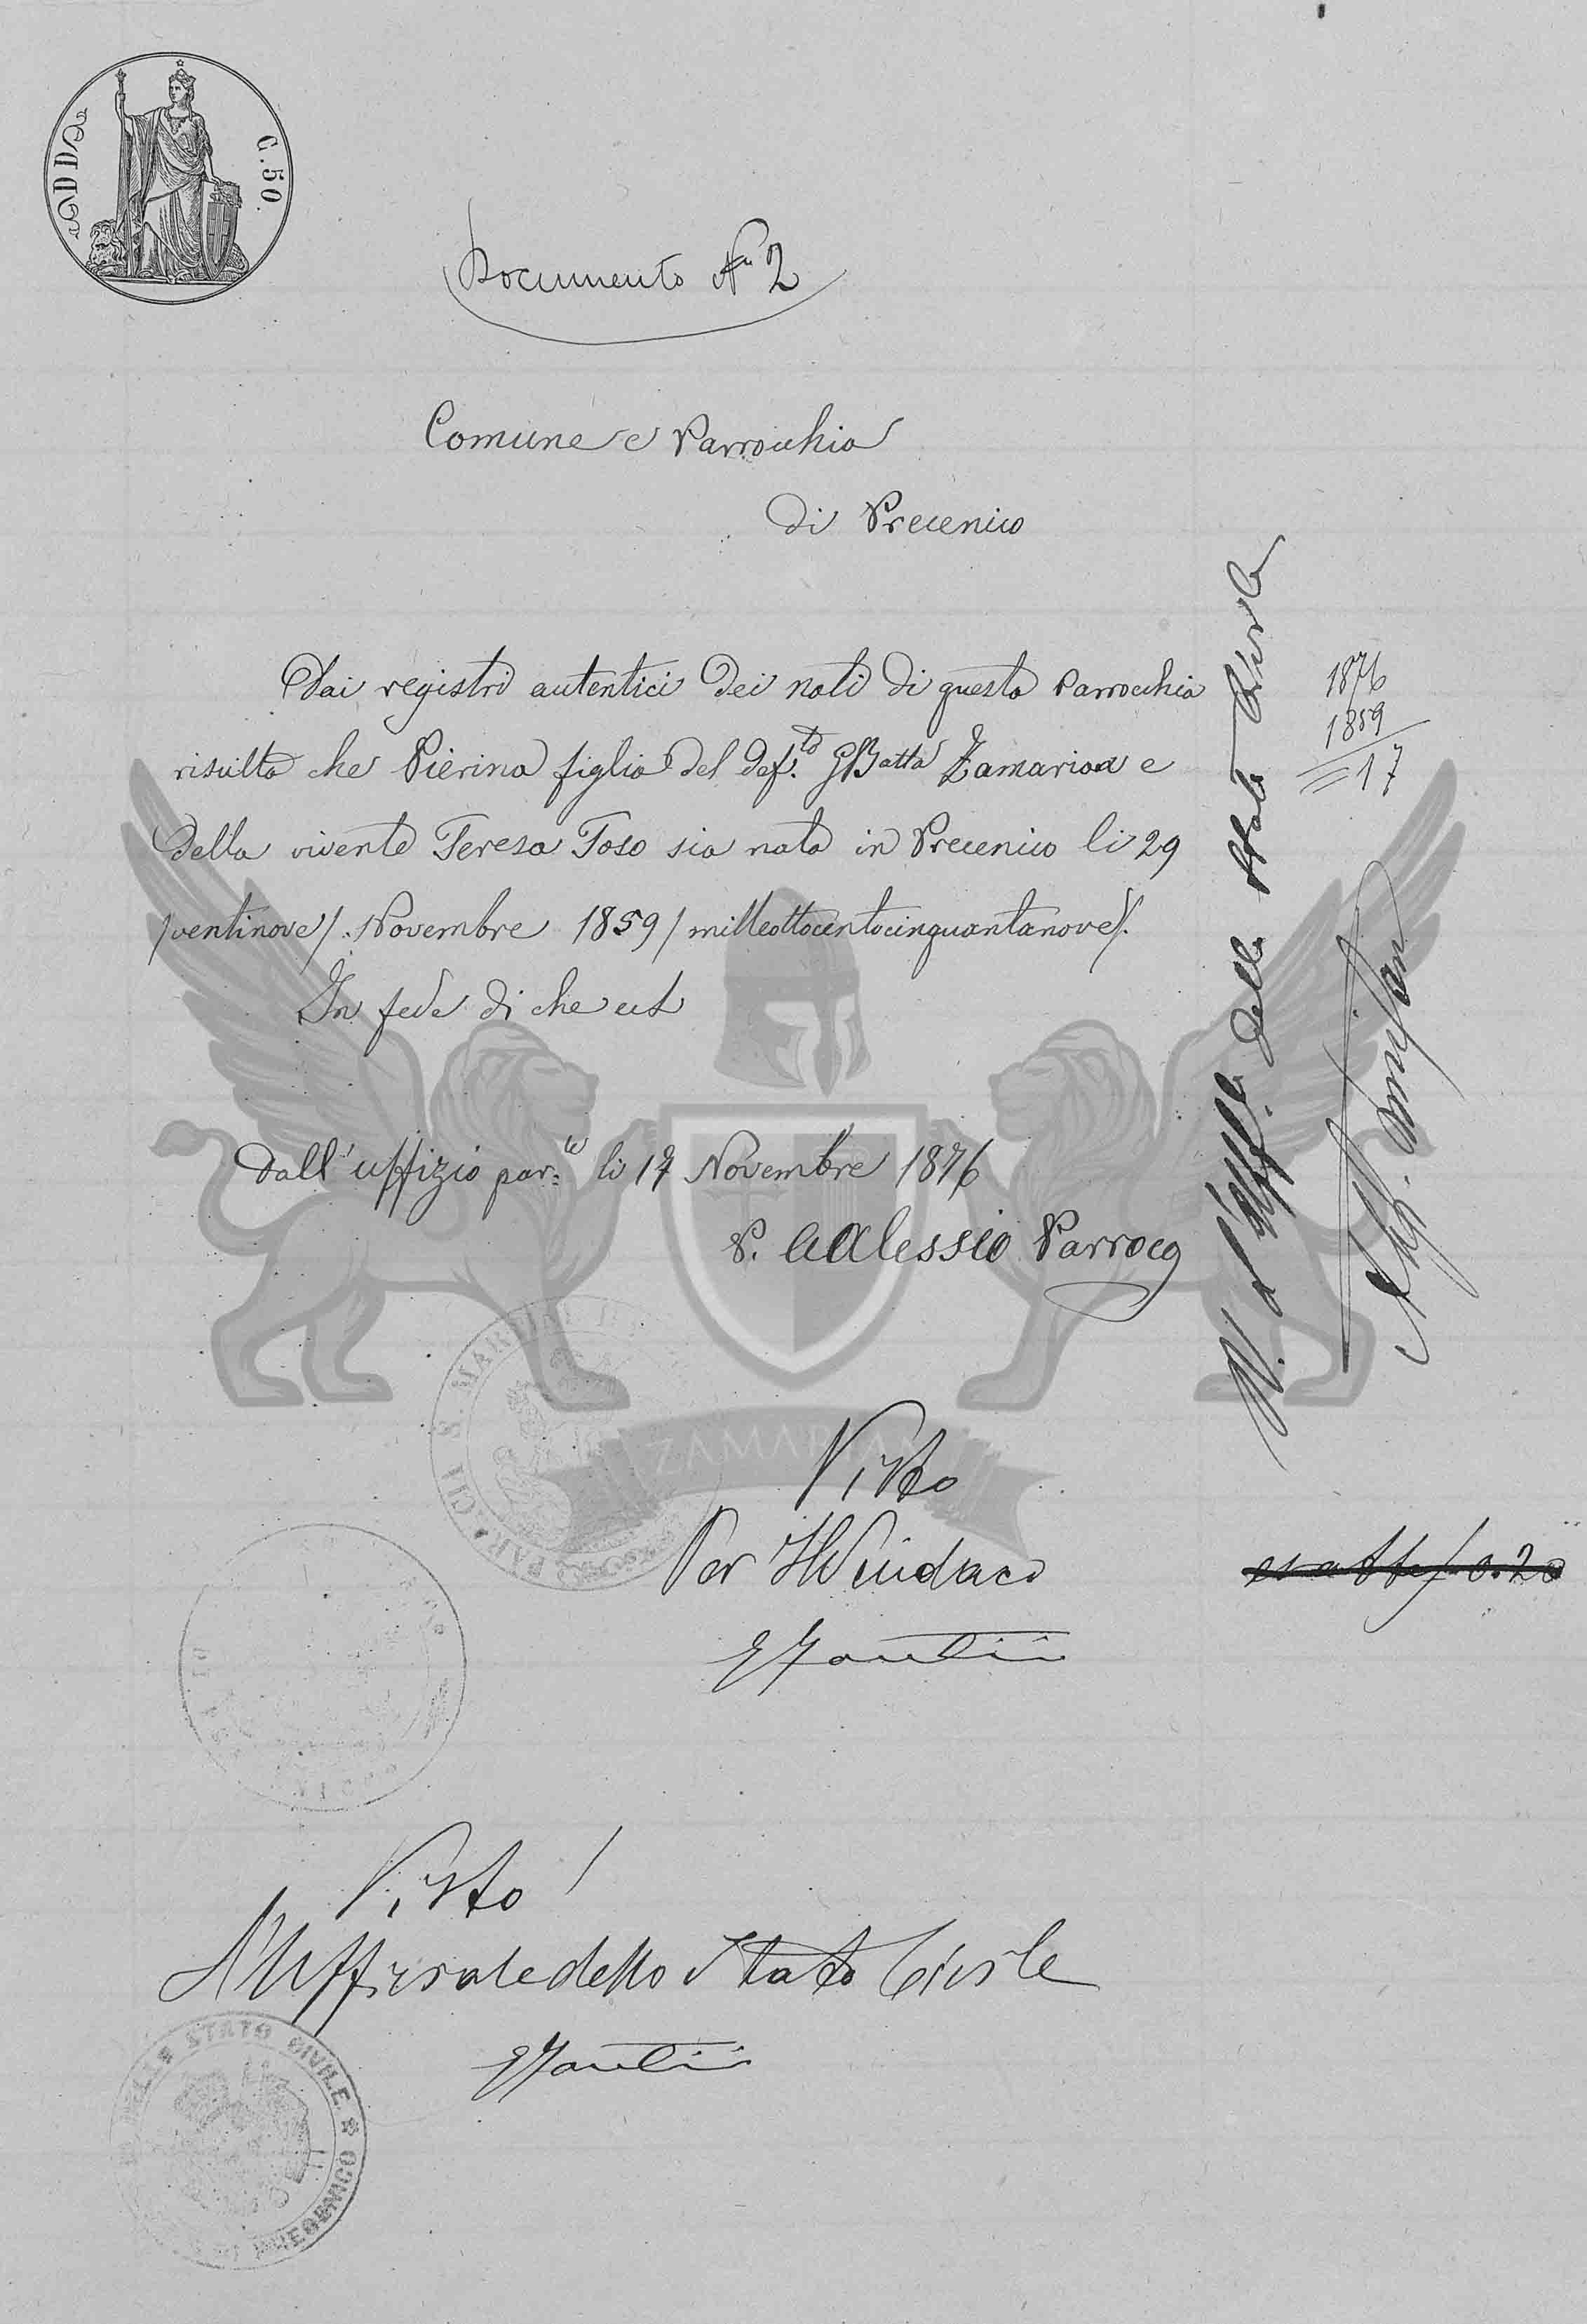 ADDA
C. 50.
Documento N° 2
Comune e Parrocchia
di Precenico
Dai registri autentici dei nati di questa Parrocchia
risulta che Pierina figlia del def.to GBatta Zamarian e
della vivente Teresa Toso sia nata in Precenico li 29
/ventinove/. Novembre 1859 / milleottocentocinquantanove/.
In fede di che ect
Dall'uffizio par.le li 17 Novembre 1876
P. Alessio Parroco
PAR CH S. MARTINI
ZAMARIA
Visto
Per Il Sindaco
V. L'Uff. dello Stato Civile
1876
1859
= 17
esatte f. 0.20
Visto
L'Uffiziale dello Stato Civile
DELLO STATO CIVILE
PRECENICO